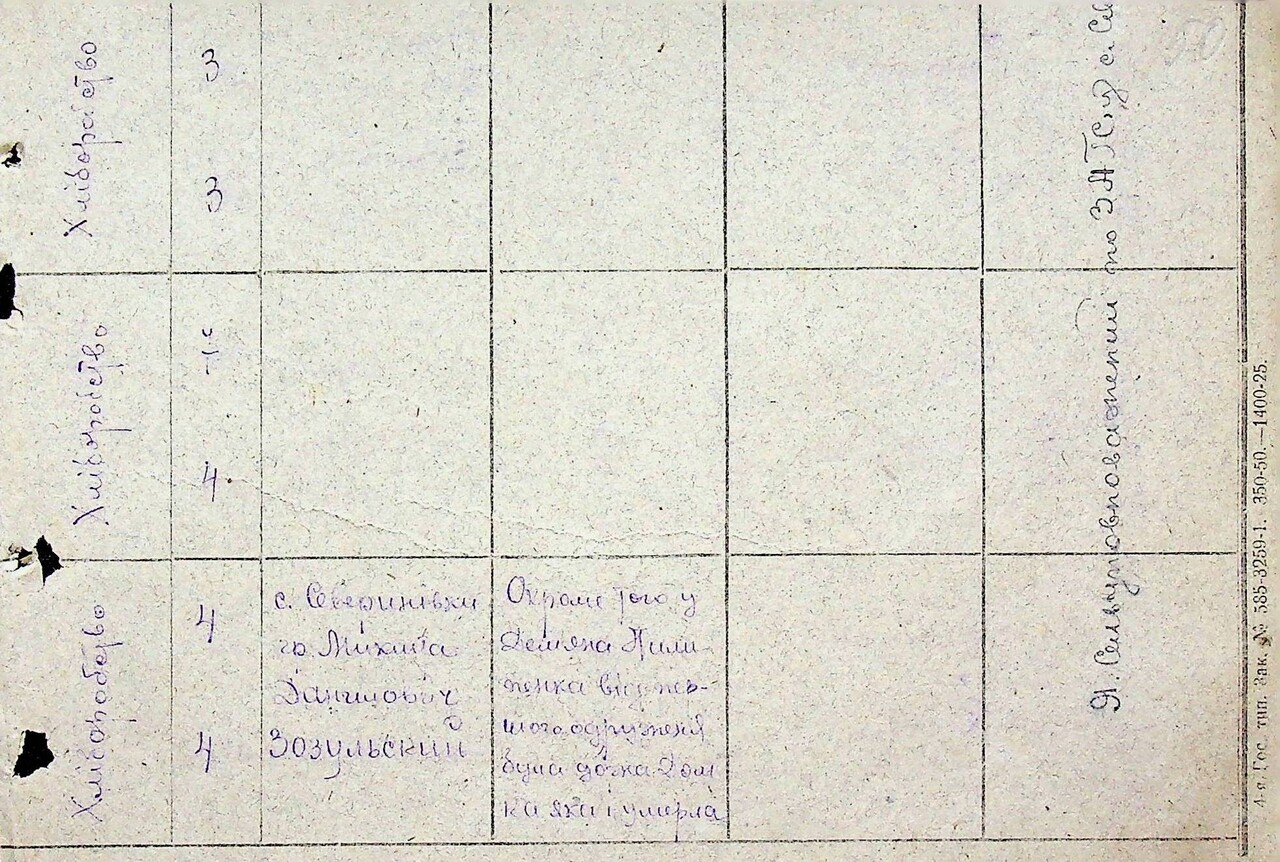 Хліборойство
3
3
Хліборойство
4
4
Хліборобство
4
4
с. Северинівки
гр. Михаил
Данилович
Зозульский
Окроме того у
Демяна Пили
пенка від пер-
шого одруженя
була дочка Дом
ка яка і умерла
Я. Сельуповноважений по ЗАГС,у с. Се
50
4-я Гос. тип. Зак. № 585-3259-1. 350-50.—1400-25.